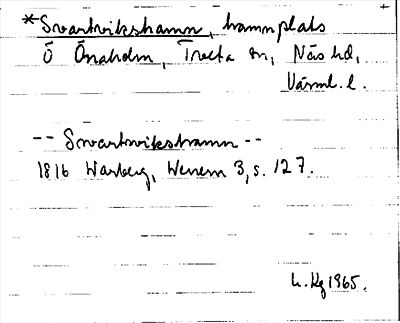 *Svartvikshamn, hamnplats
Ö Önaholm, Trveta sn, Näs hd,
Värml. l.
-- Svartvikshamn --
1816 Warberg, Wenern 3, s. 127.
L. Hg 1965.